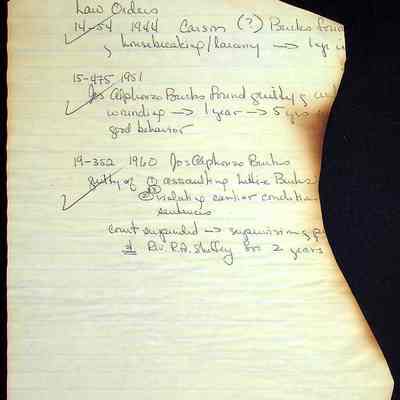 Law Orders
14-54 1944 Carson (?) Burks found
, housebreaking/larceny → 1 yr
15-475 1951
Jos Alphonzo Burks found guilty of
wounding → 1 year → 5 yrs
good behavior
19-352 1960 Jos Alphonzo Burks
guilty of ① assaulting Burks
② violating earlier condition
sentences
court suspended → supervision of
Rev. R.A. Shelley for 2 years